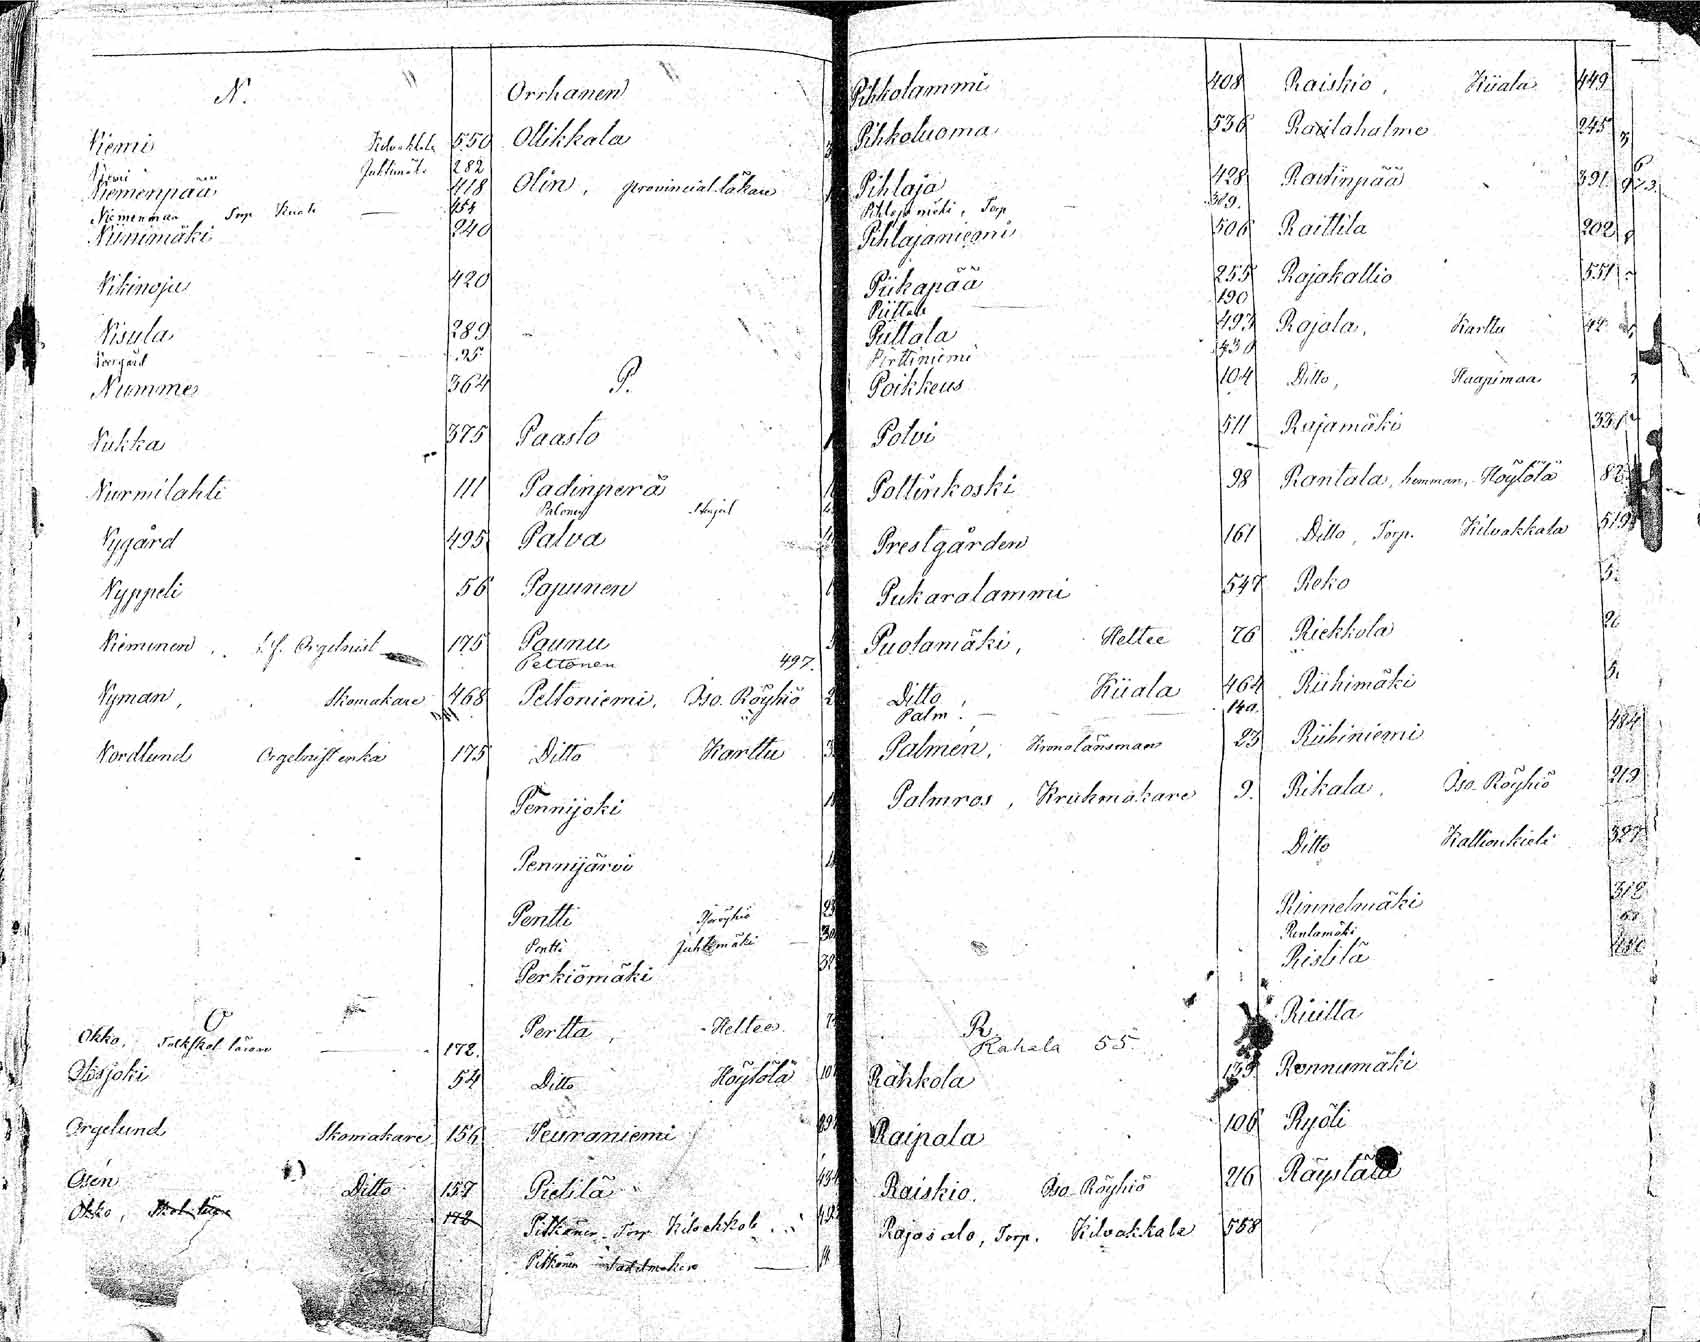 N.
Niemi Kilvakkala 550
Niemi Juhtimäki 282
Niemenpää 418
Niemenmaa Torp 454
Niinimäki 240
Nikinoja 420
Nisula 289
95
Numme 364
Nukka 375
Nurmilahti 111
Nygård 495
Nyppeli 56
Nieminen, f.f. Orgelnist 175
Nyman, Skomakare 468
Nordlund Orgelnist enka 175
O
Okko, Folkskol lärare 172.
Oksjoki 54
Orgelund Skomakare 156
Osén Ditto 157
Okko, 172
Orrhanen
Ollikkala
Olin, provincial läkare
P.
Paasto
Padinperä
Palonen
Palva
Papunen
Paunu
Peltonen 497.
Peltoniemi, Iso-Röyhiö
Ditto Karttu
Pennijoki
Pennijärvi
Pentti Isoröyhiö
Pentti Juhtimäki
Perkiömäki
Pertta, Heltee
Ditto Höytölä
Peuraniemi
Pietilä
Pitkänen Torp Kilvakkala
Pitkänen Sadelmakare
Pihkolammi 408
Pihkoluoma 536
Pihlaja 428
Pihlajamäki, Torp 389.
Pihlajaniemi 506
Piikapää 255
Piittala 190
Piittala 493
Perttiniemi 430
Poikkeus 104
Polvi 511
Polttinkoski 98
Prestgården 161
Pukaralammi 547
Puolamäki, Heltee 76
Ditto, Kiiala 464
Palm. 140.
Palmén, Kronolänsman 23
Palmros, Krukmakare 9.
R.
Rahala 55.
Rahkola 139
Raipala 106
Raiskio, Iso-Röyhiö 216
Rajasalo, Torp. Kilvakkala 558
Raiskio, Kiiala 449
Railahalme 245
Raitinpää 391
Raittila 202
Rajakallio 551
Rajala, Karttu 44
Ditto, Haapimaa
Rajamäki 331
Rantala, hemman, Höytölä 82
Ditto, Torp. Kilvakkala 519
Reko
Riekkola
Riihimäki
Riihiniemi 484
Rikala, Iso-Röyhiö 219
Ditto Kallionkieli 327
Rinnelmäki 312
Rintamäki
Ristilä
Riuitta
Ronnumäki
Ryöli
Räystälä